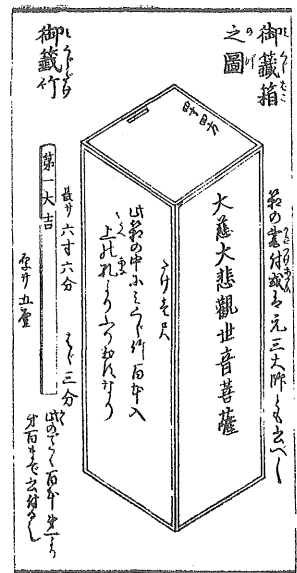 御籤箱
之圖
箱の書付或は元三大師とも書べし
四寸四方
大慈大悲觀世音菩薩
たけ壱尺
此箱の中にみくじ竹百本入
上の孔よりふり出すなり
御籤竹
第一大吉
長サ六寸六分
はゞ三分
厚サ五厘
此のごとく百本第一より
第百まで書付る